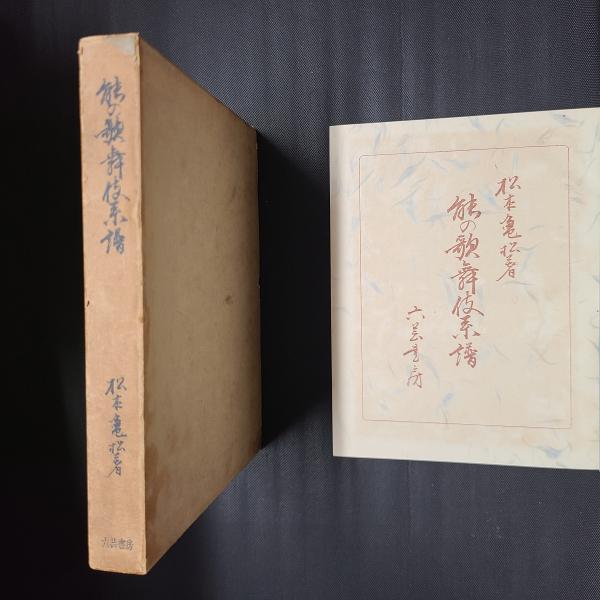 能の歌舞伎系譜
松本亀松著
六芸書房
松本亀松著
能の歌舞伎系譜
六芸書房